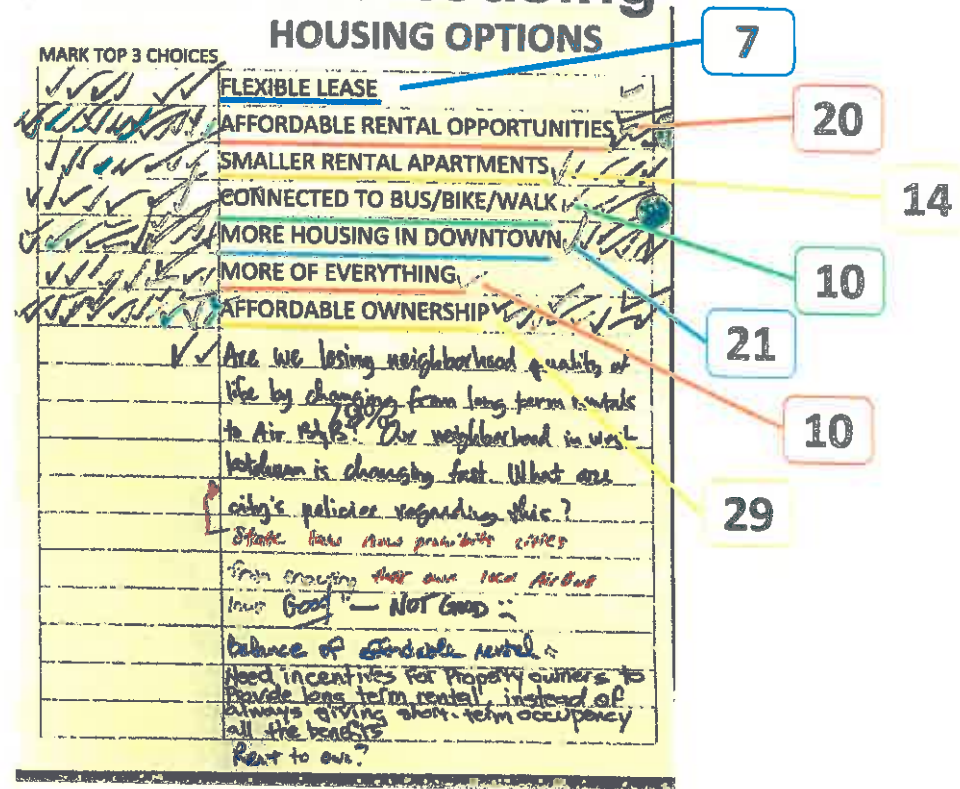 HOUSING OPTIONS
MARK TOP 3 CHOICES
FLEXIBLE LEASE
7
AFFORDABLE RENTAL OPPORTUNITIES
20
SMALLER RENTAL APARTMENTS
14
CONNECTED TO BUS/BIKE/WALK
10
MORE HOUSING IN DOWNTOWN
21
MORE OF EVERYTHING
10
AFFORDABLE OWNERSHIP
29
Are we losing neighborhood quality of
life by changing from long term rentals
to Air B&Bs? Our neighborhood in west
is changing fast. What are
city's policies regarding this?
State now prohibits cities
from enacting their own local AirBnB
Good — NOT GOOD
Balance of affordable rental
Need incentives for Property owners to
Provide long term rental, instead of
always giving short-term occupancy
all the benefits
Rent to own?